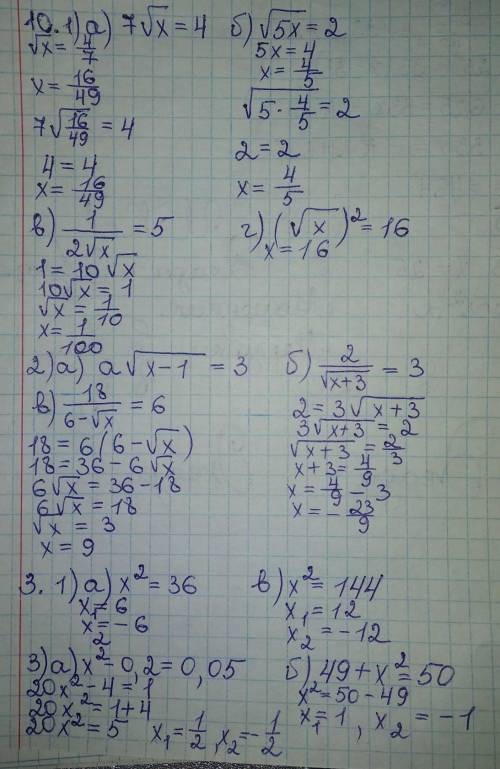 10. 1) а) 7√x = 4
√x = 4/7
x = 16/49
7√(16/49) = 4
4 = 4
x = 16/49
б) √(5x) = 2
5x = 4
x = 4/5
√(5 · 4/5) = 2
2 = 2
x = 4/5
в) 1/(2√x) = 5
1 = 10√x
10√x = 1
√x = 1/10
x = 1/100
г) (√x)² = 16
x = 16
2) а) a√(x-1) = 3
б) 2/√(x+3) = 3
2 = 3√(x+3)
3√(x+3) = 2
√(x+3) = 2/3
x + 3 = 4/9
x = 4/9 - 3
x = - 23/9
в) 18/(6-√x) = 6
18 = 6(6-√x)
18 = 36 - 6√x
6√x = 36 - 18
6√x = 18
√x = 3
x = 9
3. 1) а) x² = 36
x₁ = 6
x₂ = -6
в) x² = 144
x₁ = 12
x₂ = -12
3) а) x² - 0,2 = 0,05
20x² - 4 = 1
20x² = 1 + 4
20x² = 5 x₁ = 1/2, x₂ = - 1/2
б) 49 + x² = 50
x² = 50 - 49
x₁ = 1, x₂ = -1